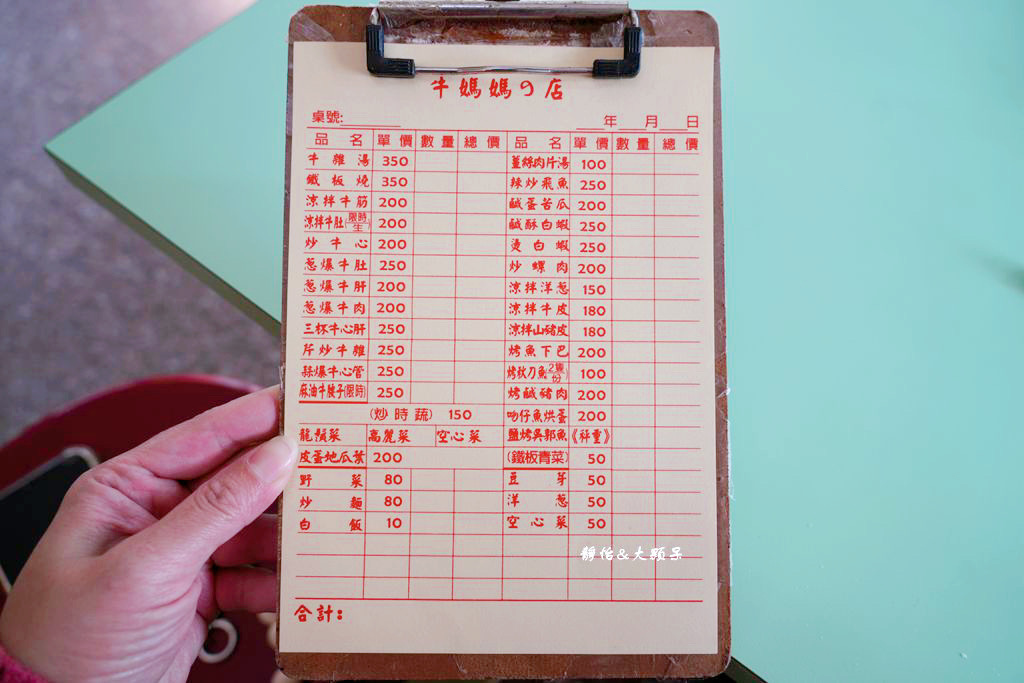 牛媽媽の店
桌號:
年 月 日
品名 單價 數量 總價 品名 單價 數量 總價
牛雜湯 350 薑絲肉片湯 100
鐵板燒 350 辣炒飛魚 250
涼拌牛筋 200 鹹蛋苦瓜 200
涼拌牛肚(限時生) 200 鹹酥白蝦 250
炒牛心 200 燙白蝦 250
蔥爆牛肚 250 炒螺肉 200
蔥爆牛肝 200 涼拌洋蔥 150
蔥爆牛肉 200 涼拌牛皮 180
三杯牛心肝 250 涼拌山豬皮 180
芹炒牛雜 250 烤魚下巴 200
蒜爆牛心管 250 烤秋刀魚(2隻份) 100
麻油牛腰子(限時) 250 烤鹹豬肉 200
(炒時蔬) 150 吻仔魚烘蛋 200
龍鬚菜 高麗菜 空心菜 鹽烤吳郭魚《秤重》
皮蛋地瓜葉 200 (鐵板青菜) 50
野菜 80 豆芽 50
炒麵 80 洋蔥 50
白飯 10 空心菜 50
靜怡&大顆子
合計: